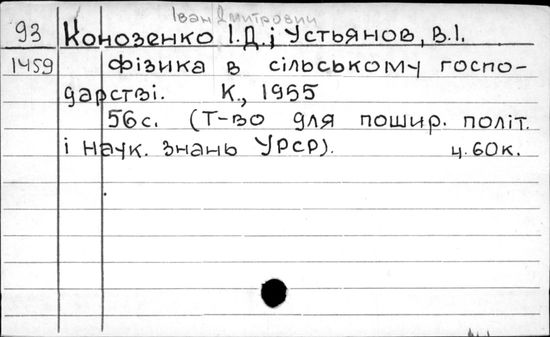 Іван Дмитрович
93 Конозенко І.Д. і Устьянов, В.І.
1459 Фізика в сільському госпо-
дарстві. К., 1955
56с. (Т-во для пошир. політ.
і наук. знань УРСР). ц. 60к.